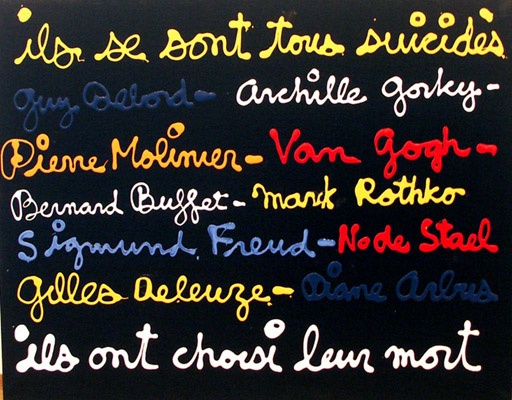 ils se sont tous suicidés
Guy Debord - Archille Gorky -
Pierre Molinier - Van Gogh -
Bernard Buffet - Mark Rothko
Sigmund Freud - N. de Stael
Gilles Deleuze - Diane Arbus
ils ont choisi leur mort